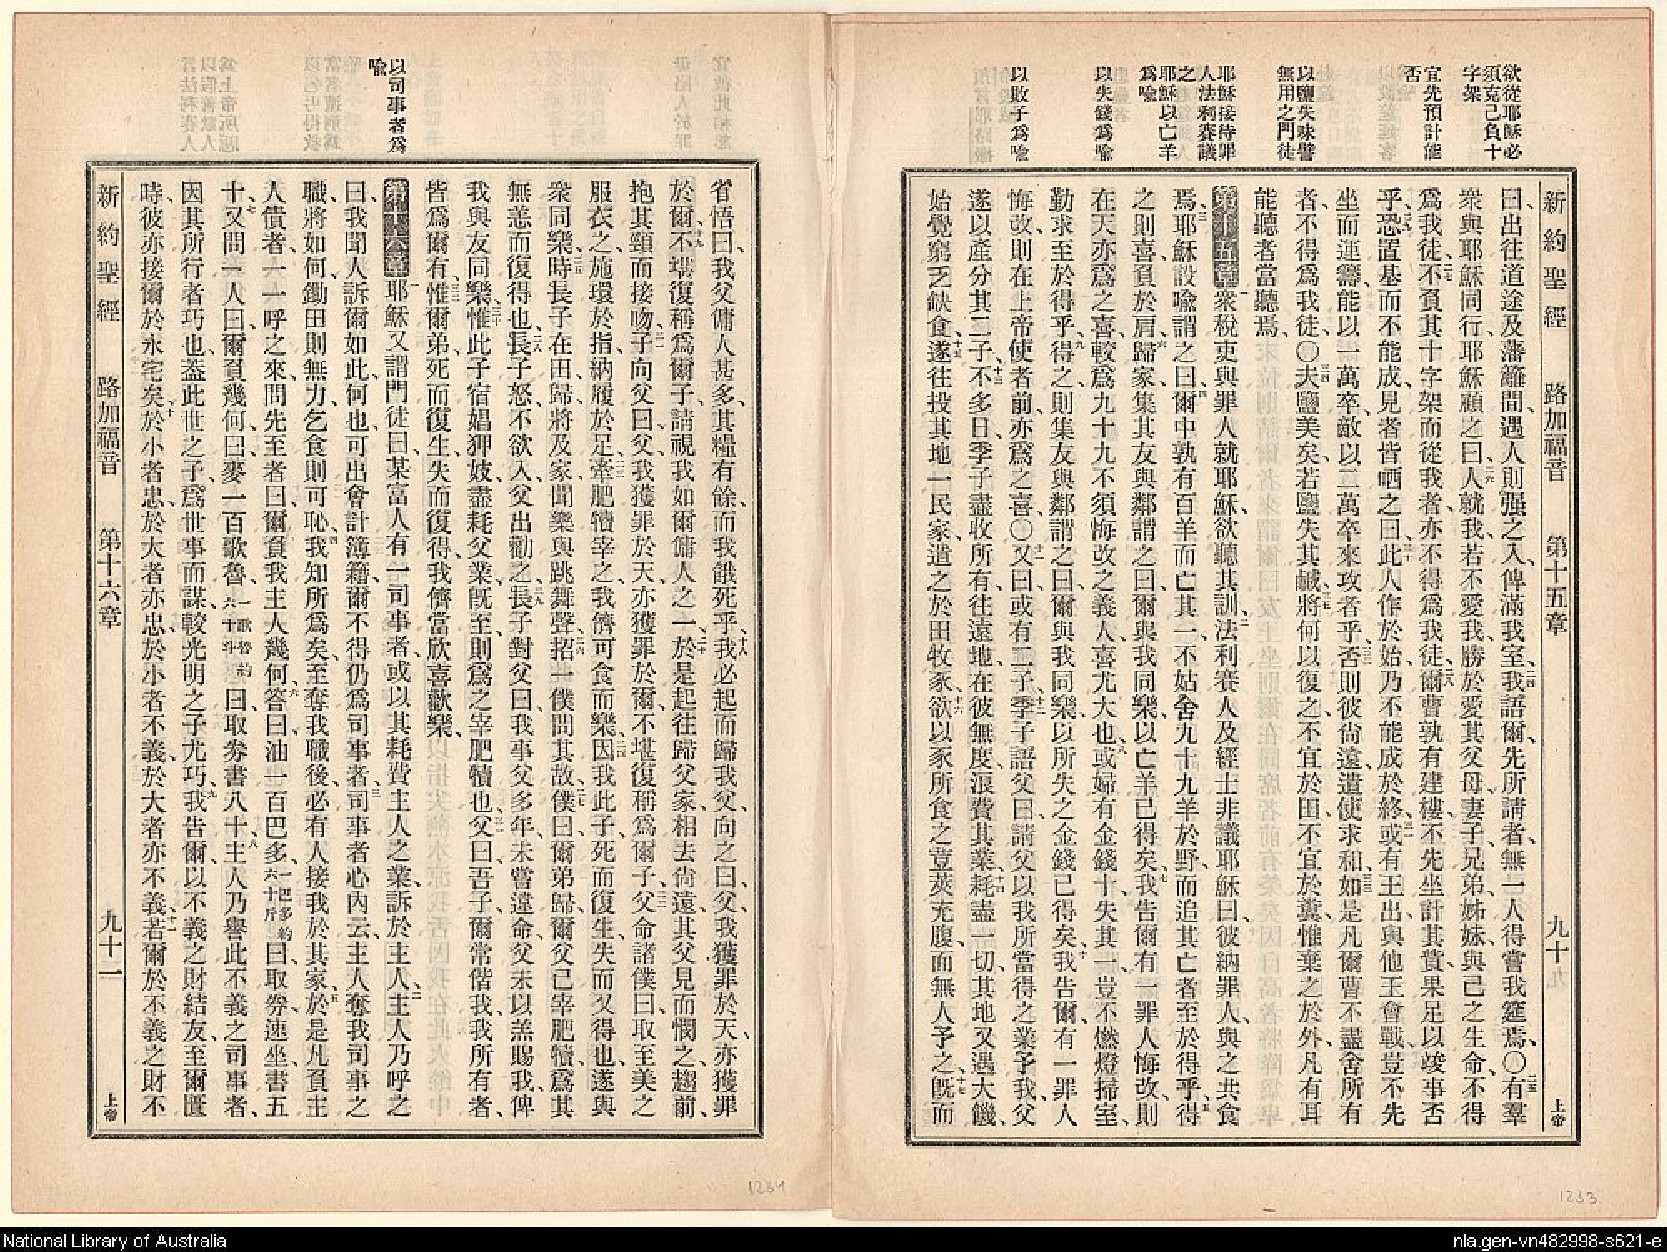 欲從耶穌必
須克己負十
字架
宜先預計能
否
以鹽失味譬
無用之門徒
耶穌接待罪
人法利賽議
之
耶穌以亡羊
為喻
以失錢為喻
以敗子為喻
新約聖經 路加福音 第十五章 九十 上帝
曰、出往道途及藩籬間、遇人則强之入、俾滿我室、二四我語爾、先所請者、無一人得嘗我筵焉、〇二五有羣
衆與耶穌同行、耶穌顧之曰、二六人就我、若不愛我勝於愛其父母妻子兄弟姊妹、與己之生命、不得
為我徒、二七不負其十字架而從我者、亦不得為我徒、二八爾曹孰有建樓、不先坐計其費、果足以竣事否
乎、二九恐置基而不能成、見者皆哂之曰、三十此人作於始、乃不能成於終、三一或有王出、與他王會戰、豈不先
坐而運籌、能以一萬卒、敵以二萬卒來攻者乎、三二否則彼尙遠、遣使求和、三三如是凡爾曹不盡舍所有
者、不得為我徒、〇三四夫鹽美矣、若鹽失其鹹、將何以復之、三五不宜於田、不宜於糞、惟棄之於外、凡有耳
能聽者當聽焉、
第十五章 一衆稅吏與罪人就耶穌、欲聽其訓、二法利賽人及經士非議耶穌曰、彼納罪人、與之共食
焉、三耶穌設喻謂之曰、四爾中孰有百羊而亡其一、不姑舍九十九羊於野、而追其亡者、至於得乎、五得
之則喜、負於肩、六歸家、集其友與鄰、謂之曰、爾與我同樂、以亡羊已得矣、七我告爾、有一罪人悔改、則
在天亦為之喜、較為九十九不須悔改之義人喜尤大也、八或婦有金錢十、失其一、豈不燃燈掃室、
勤求至於得乎、九得之、則集友與鄰、謂之曰、爾與我同樂、以所失之金錢已得矣、十我告爾、有一罪人
悔改、則在上帝使者前、亦為之喜、〇十一又曰、或有二子、十二季子語父曰、請父以我所當得之業予我、父
遂以產分其二子、十三不多日、季子盡收所有、往遠地、在彼無度、浪費其業、十四耗盡一切、其地又遇大饑、
始覺窮乏缺食、十五遂往投其地一民家、遣之於田牧豕、十六欲以豕所食之荳莢充腹、而無人予之、十七旣而
以司事者為
喻
省悟曰、我父傭人甚多、其糧有餘、而我餓死乎、十八我必起而歸我父、向之曰、父、我獲罪於天、亦獲罪
於爾、十九不堪復稱為爾子、請視我如爾傭人之一、二十於是起、往歸父家、相去尙遠、其父見而憫之、趨前
抱其頸而接吻、二一子向父曰、父、我獲罪於天、亦獲罪於爾、不堪復稱為爾子、二二父命諸僕曰、取至美之
服衣之、施環於指、納履於足、二三牽肥犢宰之、我儕可食而樂、二四因我此子、死而復生、失而又得也、遂與
衆同樂、二五時長子在田、歸將及家、聞樂與跳舞聲、二六招一僕、問其故、二七僕曰、爾弟歸、爾父已宰肥犢、為其
無恙而復得也、二八長子怒、不欲入、父出勸之、二九長子對父曰、我事父多年、未嘗違命、父未以羔賜我、俾
我與友同樂、三十惟此子、宿娼狎妓、盡耗父業、旣至、則為之宰肥犢也、三一父曰、吾子、爾常偕我、我所有者、
皆為爾有、三二惟爾弟死而復生、失而復得、我儕當欣喜歡樂、
第十六章 一耶穌又謂門徒曰、某富人有一司事者、或以其耗費主人之業、訴於主人、二主人乃呼之
曰、我聞人訴爾如此、何也、可出會計簿籍、爾不得仍為司事者、三司事者心內云、主人奪我司事之
職、將如何、鋤田則無力、乞食則可恥、四我知所為矣、至奪我職後、必有人接我於其家、五於是凡負主
人債者、一一呼之來、問先至者曰、爾負我主人幾何、六答曰、油一百巴多、一巴多約六十斤 曰、取券速坐書五
十、七又問一人曰、爾負幾何、曰、麥一百歌魯、一歌魯約六十斗 曰、取券書八十、八主人乃譽此不義之司事者、
因其所行者巧也、蓋此世之子、為世事而謀、較光明之子尤巧、九我告爾、以不義之財結友、至爾匱
時、彼亦接爾於永宅矣、十於小者忠、於大者亦忠、於小者不義、於大者亦不義、十一若爾於不義之財不
新約聖經 路加福音 第十六章 九十一 上帝
1234
1233
National Library of Australia
nla.gen-vn482998-s621-e